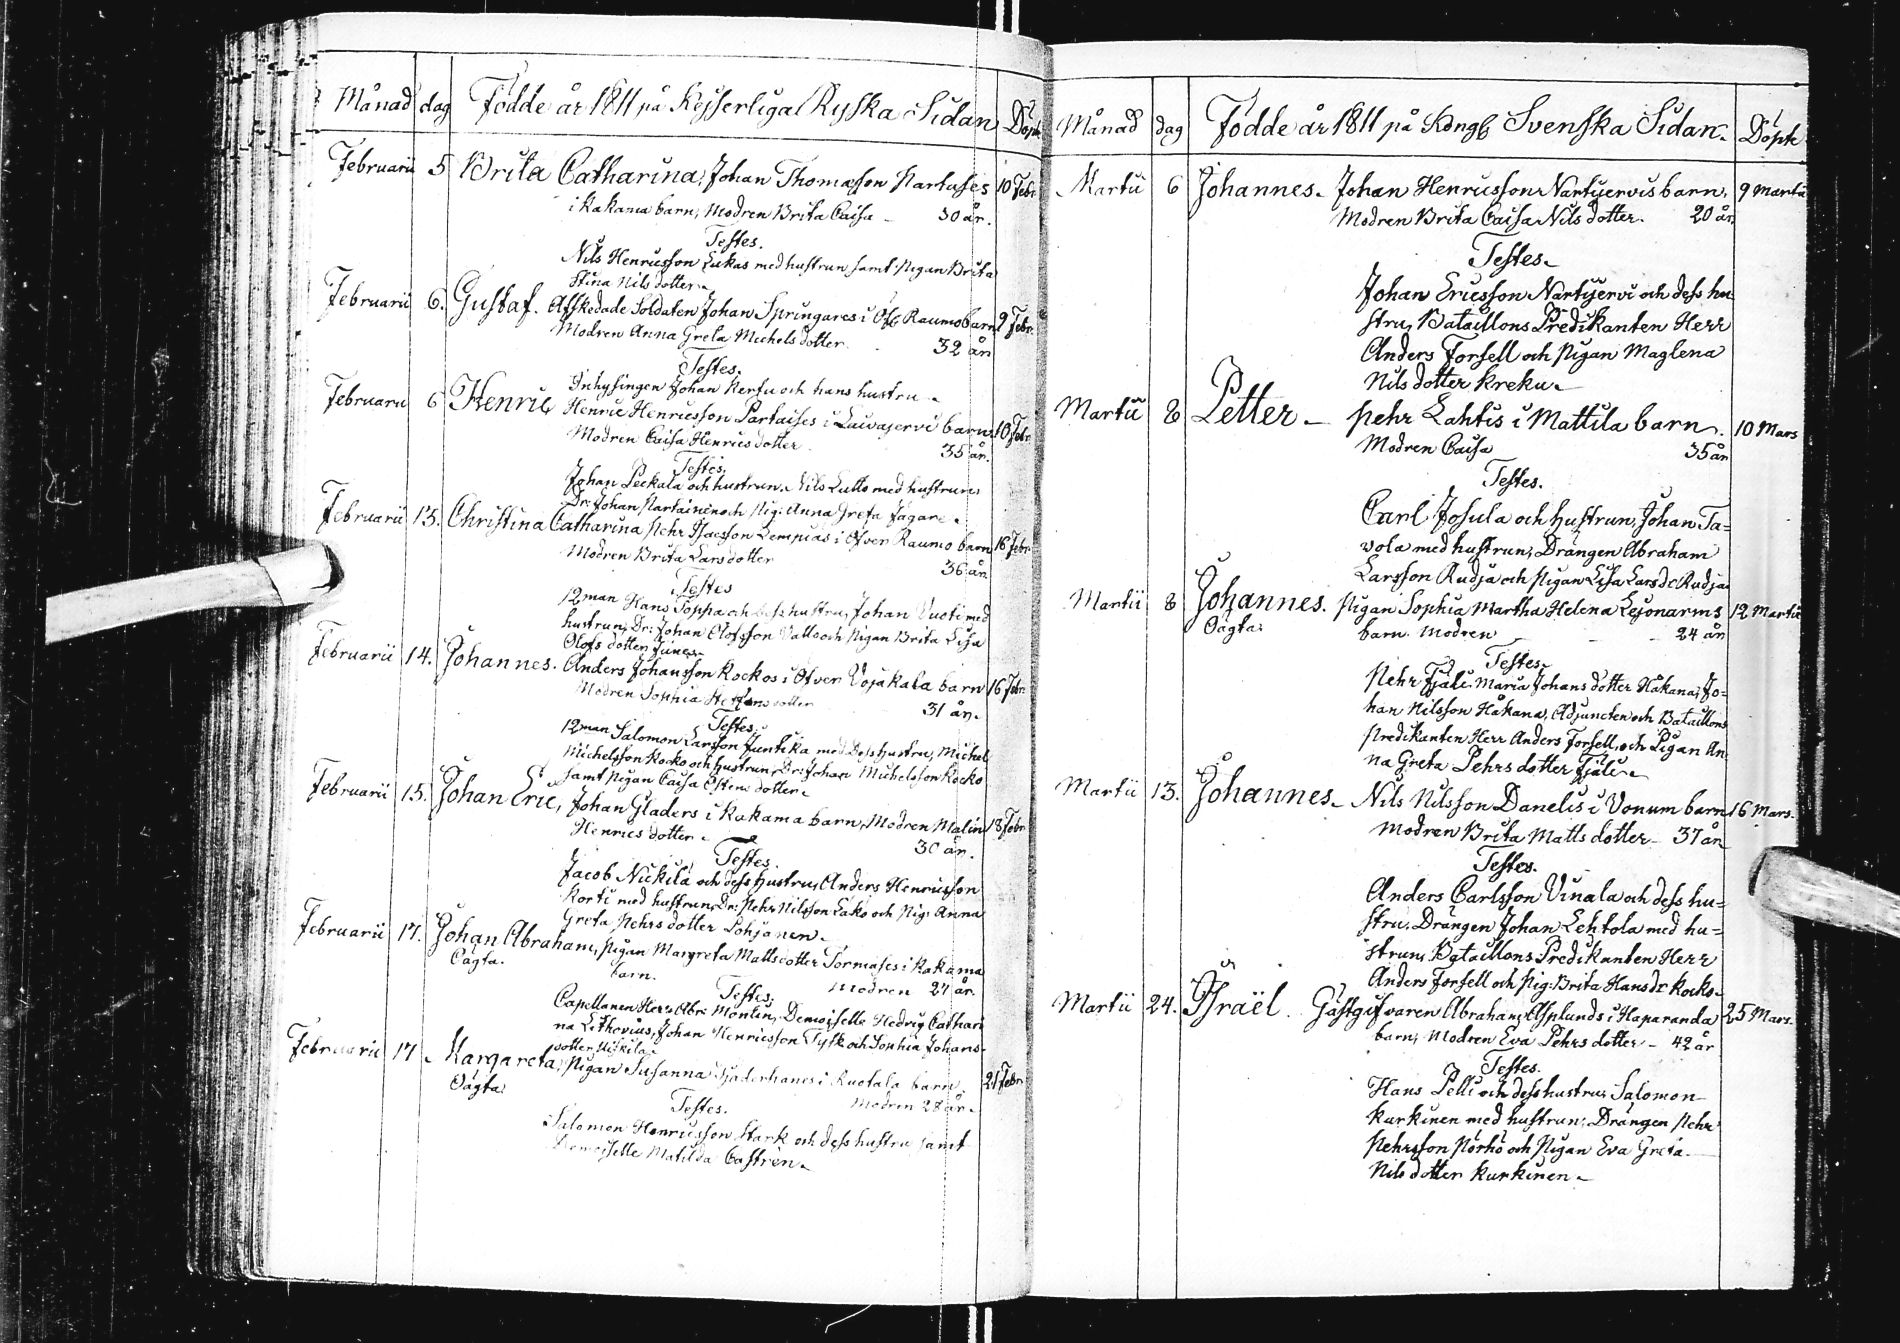 Månad dag Födde år 1811 på Kejserliga Ryska Sidan Döpte
Februarii 5 Brita Catharina, Johan Thomæson Partases 10 Febr.
i Kakama barn, Modren Brita Caisa 30 år.
Testes.
Nils Henricsson Lukas med hustrun samt Pigan Brita
Stina Nils dotter
Februarii 6. Gustaf. Afskedade Soldaten Johan Springares i Öfv. Raumo barn 9 Febr.
Modren Anna Greta Michels dotter 32 år
Testes.
Inhysingen Johan Kertu och hans hustru
Februarii 6 Henric Henric Henricsson Partaises i Laivajervi barn 10 Febr.
Modren Caisa Henrics dotter 35 år.
Testes.
Johan Peekala och hustrun. Nils Lutto med hustrun
Dr: Johan Partainin och Pig: Anna Greta Jagare
Februarii 13. Christina Catharina Pehr Isacsson Lempias i Öfver Raumo barn 16 Febr.
Modren Brita Lars dotter 36 år
Testes
12man Hans Poppa och dess hustru, Johan Vuoti med
hustrun, Dr: Johan Olofsson Vallo och Pigan Brita Lisa
Olofs dotter Junes
Februarii 14. Johannes. Anders Johansson Kockos i Öfver Vojakala barn 16 Febr.
Modren Sophia Steffans dotter 31 år.
Testes.
12man Salomon Larsson Juntika med Dess hustru, Michel
Michelsson Kocko och hustrun, Dr: Johan Michelsson Kocko
samt Pigan Caisa Estens dotter
Februarii 15. Johan Eric, Johan Gladers i Kakama barn, Modren Malin 18 Febr.
Henrics dotter 30 år.
Testes.
Jacob Nickila och dess hustru, Anders Henricsson
Korti med hustrun, Dr: Pehr Nilsson Lako och Pig: Anna
Greta Pehrs dotter Lohjanen
Februarii 17. Johan Abraham, Pigan Margreta Matts dotter Tormases i Kakama
Oägta. barn. Modren 27 år.
Testes.
Capellanen Herr Abr: Montin, Demoiselle Hedvig Cathari
na Lithovius, Johan Henricsson Tylk och Sophia Johans
dotter Niskila
Februarii 17 Margareta, Pigan Susanna i Ruotala barn 21 Febr.
Oägta Modren 28 år.
Testes.
Salomon Henricsson Stark och dess hustru samt
Demoiselle Matilda Castrén
Månad dag Födde år 1811 på Kongl. Svenska Sidan Döpte
Martii 6 Johannes. Johan Henricssons Nartijervis barn, 9 Martii
Modren Brita Caisa Nils dotter. 20 år.
Testes.
Johan Ericsson Nartijervi och dess hu
stru, Bataillons Predikanten Herr
Anders Forsell och Pigan Maglena
Nils dotter Kreku
Martii 8 Petter Pehr Lahtis i Mattila barn. 10 Mars
Modren Caisa 35 år
Testes.
Carl Josula och hustrun, Johan Ta=
vola med hustrun, Drängen Abraham
Larsson Rudja och Pigan Lisa Lars Dr Rudja
Martii 8 Johannes. Pigan Sophia Martha Helena Lejonarms 12 Martii
Oägta: barn. Modren 24 år
Testes.
Pehr Fjäli, Maria Johans dotter Håkana, Jo=
han Nilsson Håkana, Adjuncten och Bataillons
Predikanten Herr Anders Forsell, och Pigan An
na Greta Pehrs dotter Fjäli
Martii 13. Johannes. Nils Nilsson Danelis i Vonum barn 16 Mars.
Modren Brita Matts dotter 37 år
Testes.
Anders Carlsson Vinala och dess hu=
stru, Drängen Johan Lehtola med hu=
strun, Bataillons Predikanten Herr
Anders Forsell och Pig: Brita Hans dr Kocko
Martii 24. Israël. Gästgifvaren Abraham Asplunds i Haparanda 25 Mars.
barn, Modren Eva Pehrs dotter 42 år
Testes.
Hans Pelli och dess hustru, Salomon
Kurkinen med hustrun, Drängen Pehr
Pehrsson Pörhö och Pigan Eva Greta
Nils dotter Kurkinen